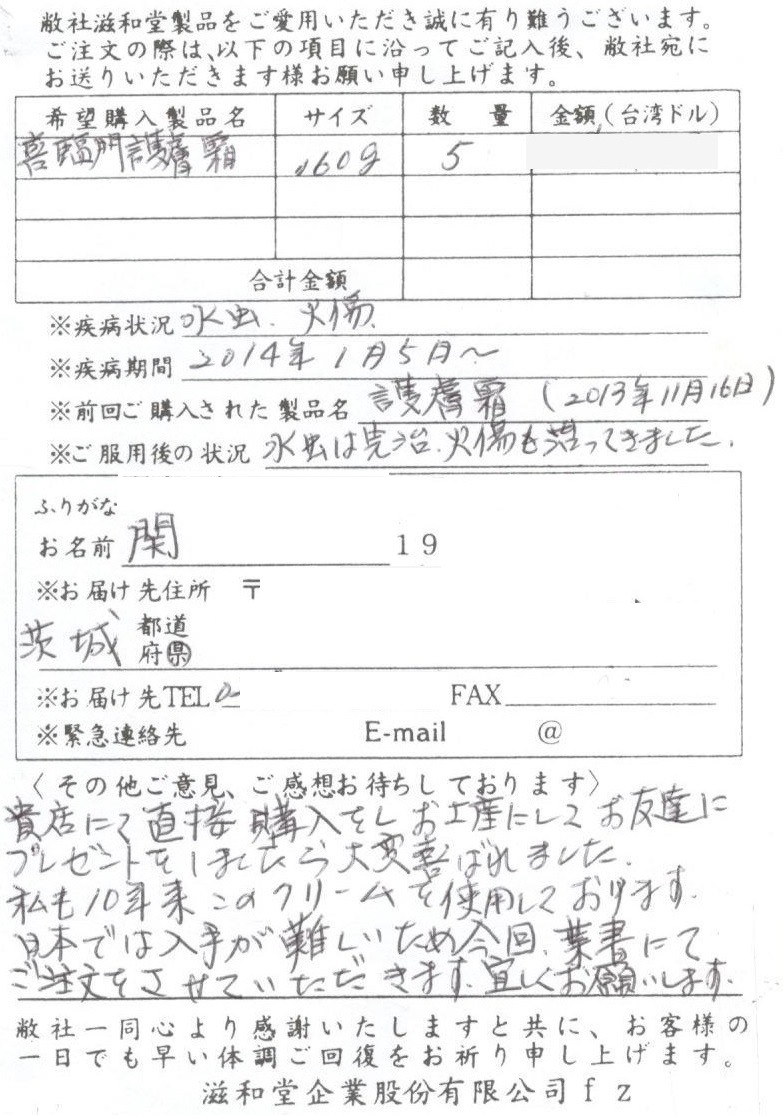 敝社滋和堂製品をご愛用いただき誠に有り難うございます。
ご注文の際は、以下の項目に沿ってご記入後、敝社宛に
お送りいただきます様お願い申し上げます。
希望購入製品名 サイズ 数 量 金額(台湾ドル)
喜臨門護膚霜 160g 5
合計金額
※疾病状況 水虫、火傷
※疾病期間 2014年1月5日～
※前回ご購入された製品名 護膚霜 (2013年11月16日)
※ご服用後の状況 水虫は完治、火傷も治ってきました。
ふりがな
お名前 関 19
※お届け先住所 〒
茨城 都道
府県
※お届け先TEL 0- FAX
※緊急連絡先 E-mail @
〈その他ご意見、ご感想お待ちしております〉
貴店にて直接購入をしお土産にしてお友達に
プレゼントをしましたら大変喜ばれました。
私も10年来このクリームを使用しております。
日本では入手が難しいため今回、葉書にて
ご注文をさせていただきます。宜しくお願いします。
敝社一同心より感謝いたしますと共に、お客様の
一日でも早い体調ご回復をお祈り申し上げます。
滋和堂企業股份有限公司fz